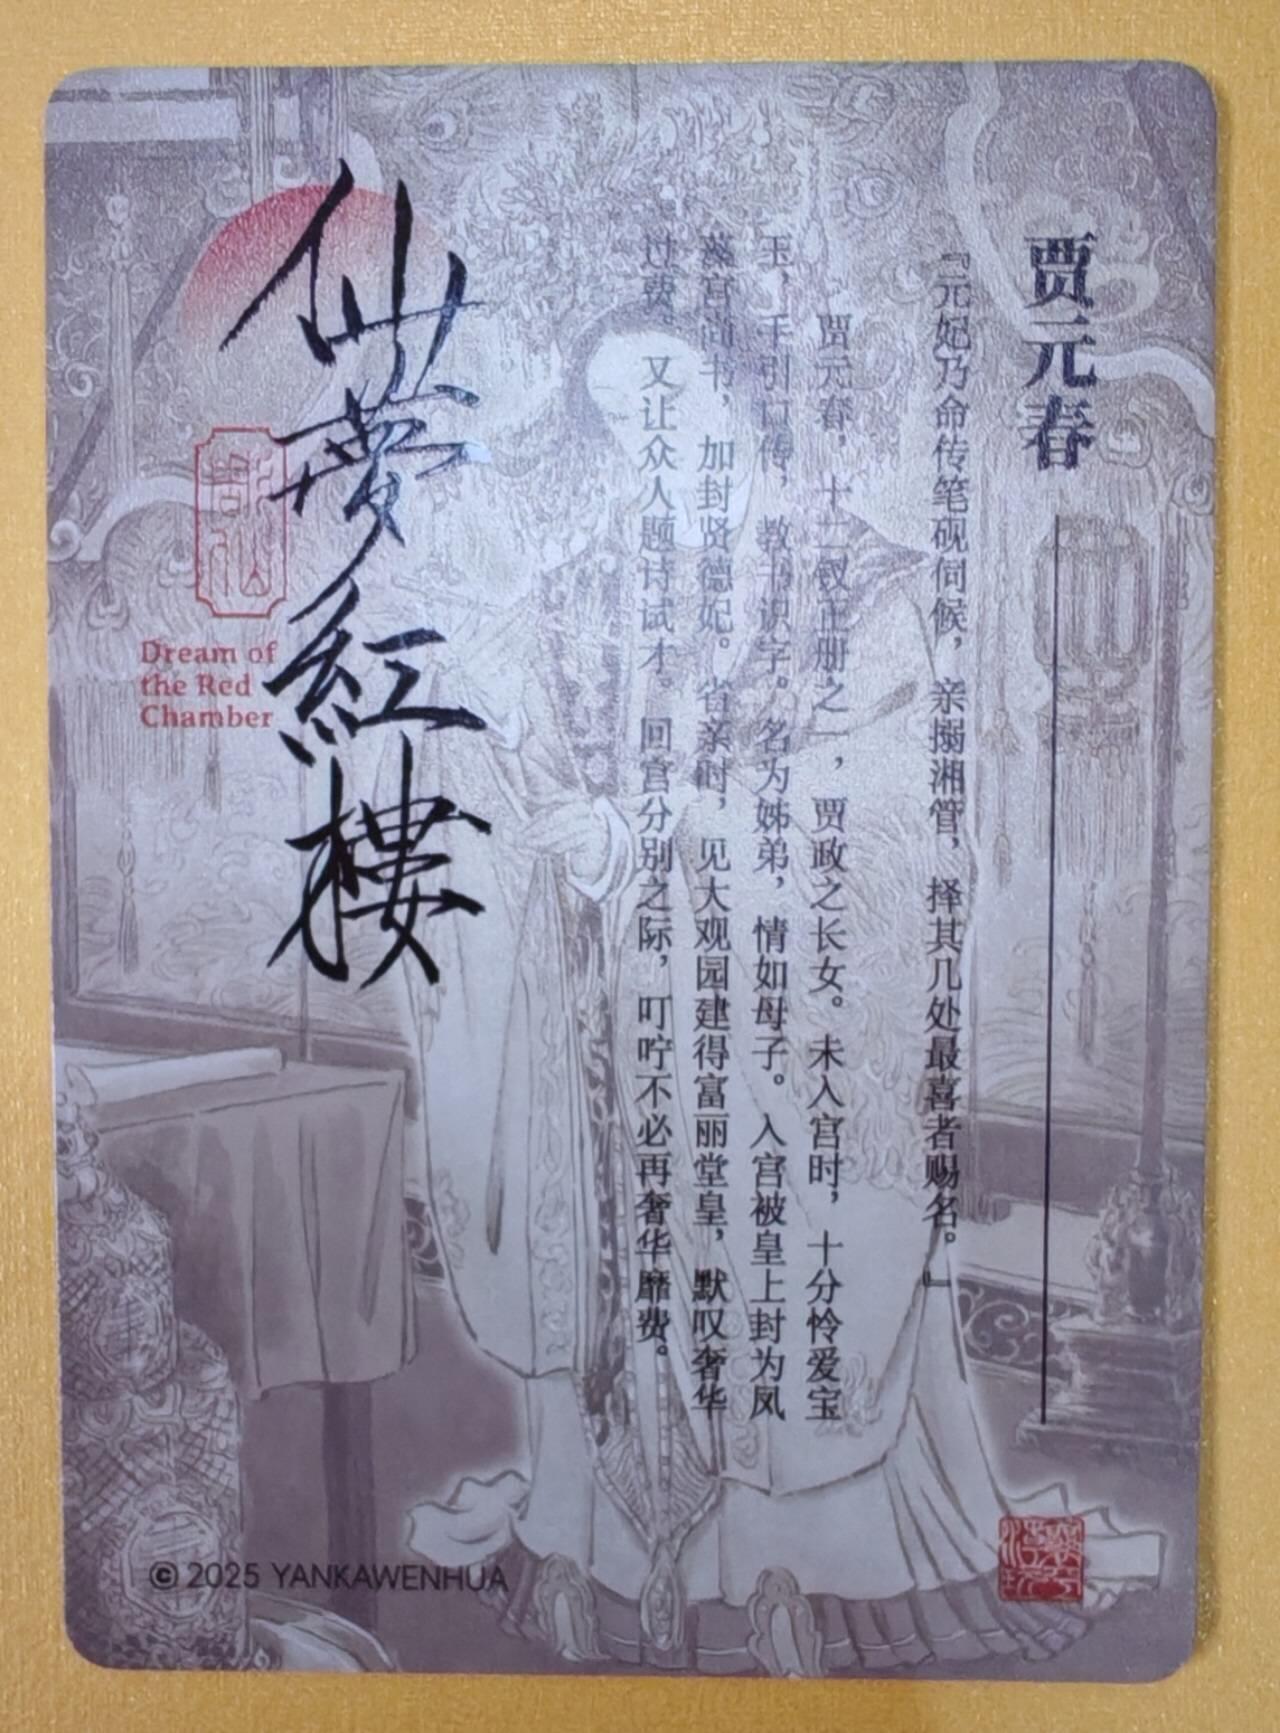 贾元春
『元妃乃命传笔砚伺候，亲搦湘管，择其几处最喜者赐名。』
贾元春，十二钗正册之一，贾政之长女。未入宫时，十分怜爱宝
玉，手引口传，教书识字。名为姊弟，情如母子。入宫被皇上封为凤
藻宫尚书，加封贤德妃。省亲时，见大观园建得富丽堂皇，默叹奢华
过费。又让众人题诗试才。回宫分别之际，叮咛不必再奢华靡费。
仙夢紅樓
Dream of
the Red
Chamber
© 2025 YANKAWENHUA